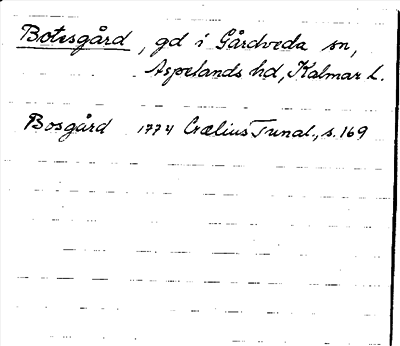 Botesgård, gd i Gårdveda sn,
Aspelands hd, Kalmar l.
Bosgård 1774 Crælius Tunal., s. 169